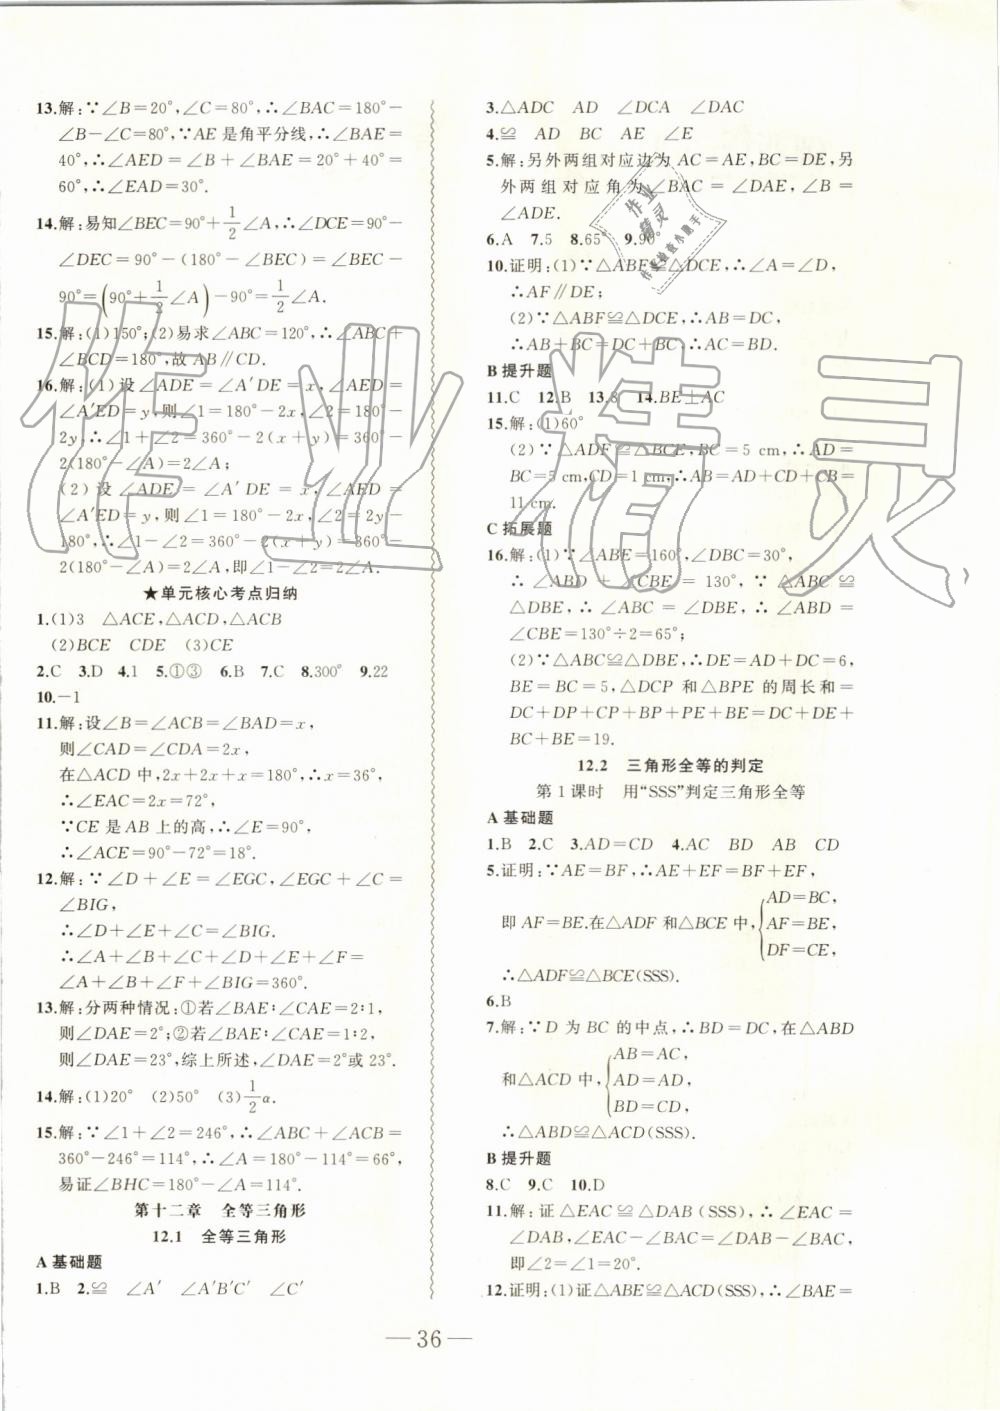 13.解:∵∠B=20°,∠C=80°,∴∠BAC=180°-
∠B-∠C=80°,∵AE是角平分线,∴∠BAE=
40°,∴∠AED=∠B+∠BAE=20°+40°=
60°,∴∠EAD=30°.
14.解:易知∠BEC=90°+1/2∠A,∴∠DCE=90°-
∠DEC=90°-(180°-∠BEC)=∠BEC-
90°=(90°+1/2∠A)-90°=1/2∠A.
15.解:(1)150°;(2)易求∠ABC=120°,∴∠ABC+
∠BCD=180°,故AB∥CD.
16.解:(1)设∠ADE=∠A'DE=x,∠AED=
∠A'ED=y,则∠1=180°-2x,∠2=180°-
2y,∴∠1+∠2=360°-2(x+y)=360°-
2(180°-∠A)=2∠A;
(2)设∠ADE=∠A'DE=x,∠AED=
∠A'ED=y,则∠1=180°-2x,∠2=2y-
180°,∴∠1-∠2=360°-2(x+y)=360°-
2(180°-∠A)=2∠A,即∠1-∠2=2∠A.
★单元核心考点归纳
1.(1)3 △ACE,△ACD,△ACB
(2)BCE CDE (3)CE
2.C 3.D 4.1 5.①③ 6.B 7.C 8.300° 9.22
10.-1
11.解:设∠B=∠ACB=∠BAD=x,
则∠CAD=∠CDA=2x,
在△ACD中,2x+2x+x=180°,∴x=36°,
∴∠EAC=2x=72°,
∵CE是AB上的高,∴∠E=90°,
∴∠ACE=90°-72°=18°.
12.解:∵∠D+∠E=∠EGC,∠EGC+∠C=
∠BIG,
∴∠D+∠E+∠C=∠BIG.
∴∠A+∠B+∠C+∠D+∠E+∠F=
∠A+∠B+∠F+∠BIG=360°.
13.解:分两种情况:①若∠BAE∶∠CAE=2∶1,
则∠DAE=2°;②若∠BAE∶∠CAE=1∶2,
则∠DAE=23°,综上所述,∠DAE=2°或23°.
14.解:(1)20° (2)50° (3)1/2α.
15.解:∵∠1+∠2=246°,∴∠ABC+∠ACB=
360°-246°=114°,∴∠A=180°-114°=66°,
易证∠BHC=180°-∠A=114°.
第十二章 全等三角形
12.1 全等三角形
A基础题
1.B 2.≌ ∠A' ∠A'B'C' ∠C'
3.△ADC AD ∠DCA ∠DAC
4.≌ AD BC AE ∠E
5.解:另外两组对应边为AC=AE,BC=DE,另
外两组对应角为∠BAC=∠DAE,∠B=
∠ADE.
6.A 7.5 8.65° 9.90°
10.证明:(1)∵△ABF≌△DCE,∴∠A=∠D,
∴AF∥DE;
(2)∵△ABF≌△DCE,∴AB=DC,
∴AB+BC=DC+BC,∴AC=BD.
B提升题
11.C 12.B 13.8 14.BE⊥AC
15.解:(1)60°
(2)∵△ADF≌△BCE,BC=5 cm,∴AD=
BC=5 cm,CD=1 cm,∴AB=AD+CD+CB=
11 cm.
C拓展题
16.解:(1)∵∠ABE=160°,∠DBC=30°,
∴∠ABD+∠CBE=130°,∵△ABC≌
△DBE,∴∠ABC=∠DBE,∴∠ABD=
∠CBE=130°÷2=65°;
(2)∵△ABC≌△DBE,∴DE=AD+DC=6,
BE=BC=5,△DCP和△BPE的周长和=
DC+DP+CP+BP+PE+BE=DC+DE+
BC+BE=19.
12.2 三角形全等的判定
第1课时 用“SSS”判定三角形全等
A基础题
1.B 2.C 3.AD=CD 4.AC BD AB CD
5.证明:∵AE=BF,∴AE+EF=BF+EF,
即AF=BE.在△ADF和△BCE中,{AD=BC,
AF=BE,
DF=CE,
∴△ADF≌△BCE(SSS).
6.B
7.解:∵D为BC的中点,∴BD=DC,在△ABD
和△ACD中,{AB=AC,
AD=AD,
BD=CD,
∴△ABD≌△ACD(SSS).
B提升题
8.C 9.C 10.D
11.解:证△EAC≌△DAB(SSS),∴∠EAC=
∠DAB,∠EAC-∠BAC=∠DAB-∠BAC,
即∠2=∠1=20°.
12.证明:(1)证△ABE≌△ACD(SSS),∴∠BAE=
—36—
作业精灵
作业
精灵
作业检查小助手